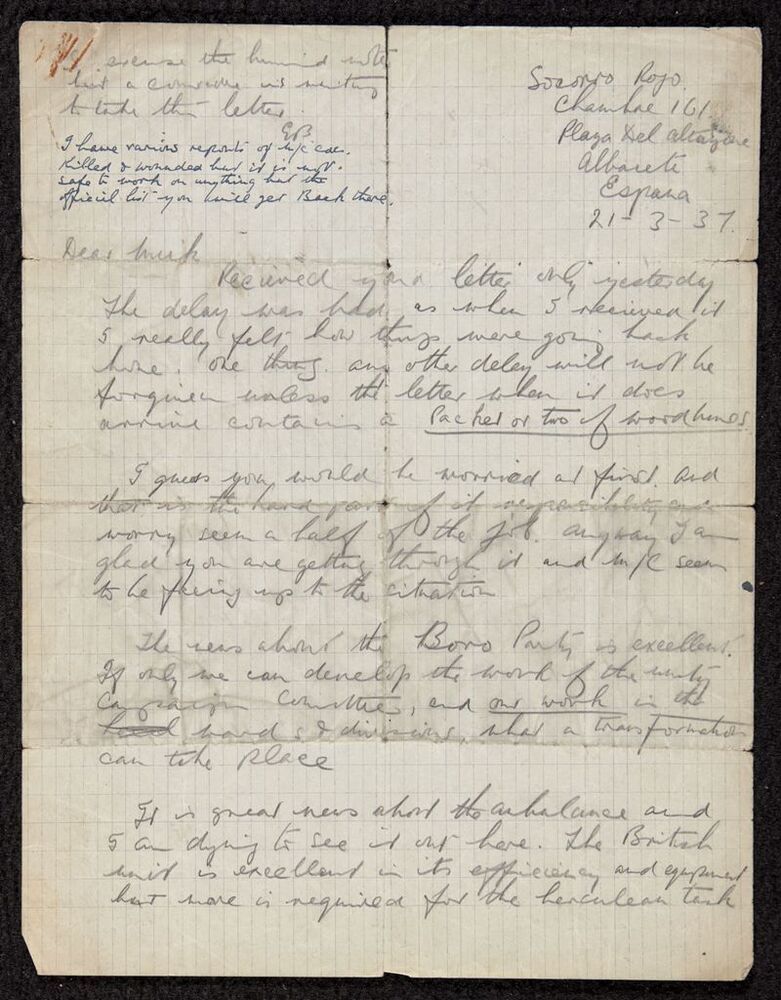 excuse the hurried note
but a comrade is waiting
to take this letter
EB
I have various reports of M/C cdes.
Killed & wounded but it is not
safe to work on anything but the
official list you will get Back there.
Socorro Rojo.
Chambre 161
Plaza Del
Albacete
Espana
21-3-37.
Dear Mick
Recieved your letter only yesterday
The delay was bad, as when I received it
I really felt how things were going back
home. One thing. any other delay will not be
forgiven unless the letter when it does
arrive contains a Packet or two of woodbines
I guess you would be worried at first. and
that is the hard part of it responsibility and
worry seem a half of the job. anyway I am
glad you are getting through it and M/C seem
to be facing up to the situation
The news about the Boro Party is excellent.
If only we can develop the work of the unity
Campaign Committee, and our work in the
wards & divisions, what a transformation
can take place
It is great news about the ambulance and
I am dying to see it out here. The British
unit is excellent in its efficiency and equipment
but more is required for the herculean task